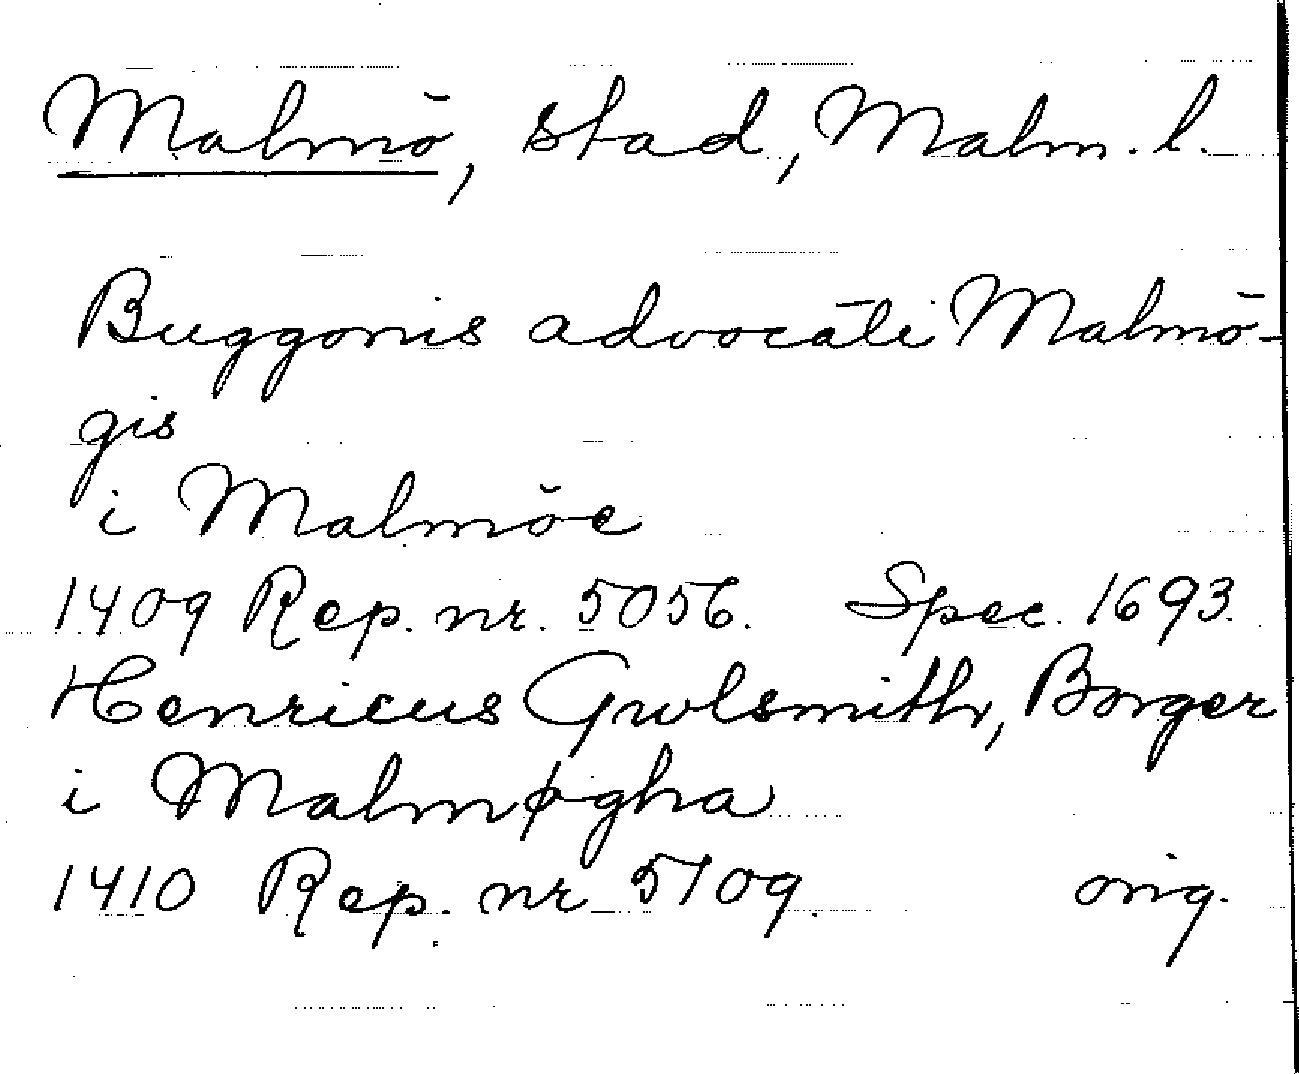 Malmö, stad, Malm. l.
Buggonis advocati Malmö-
gis
i Malmöe
1409 Rep. nr. 5056. Spec. 1693.
Henricus Gwlsmith, Borger
i Malmøgha
1410 Rep. nr 5109. orig.